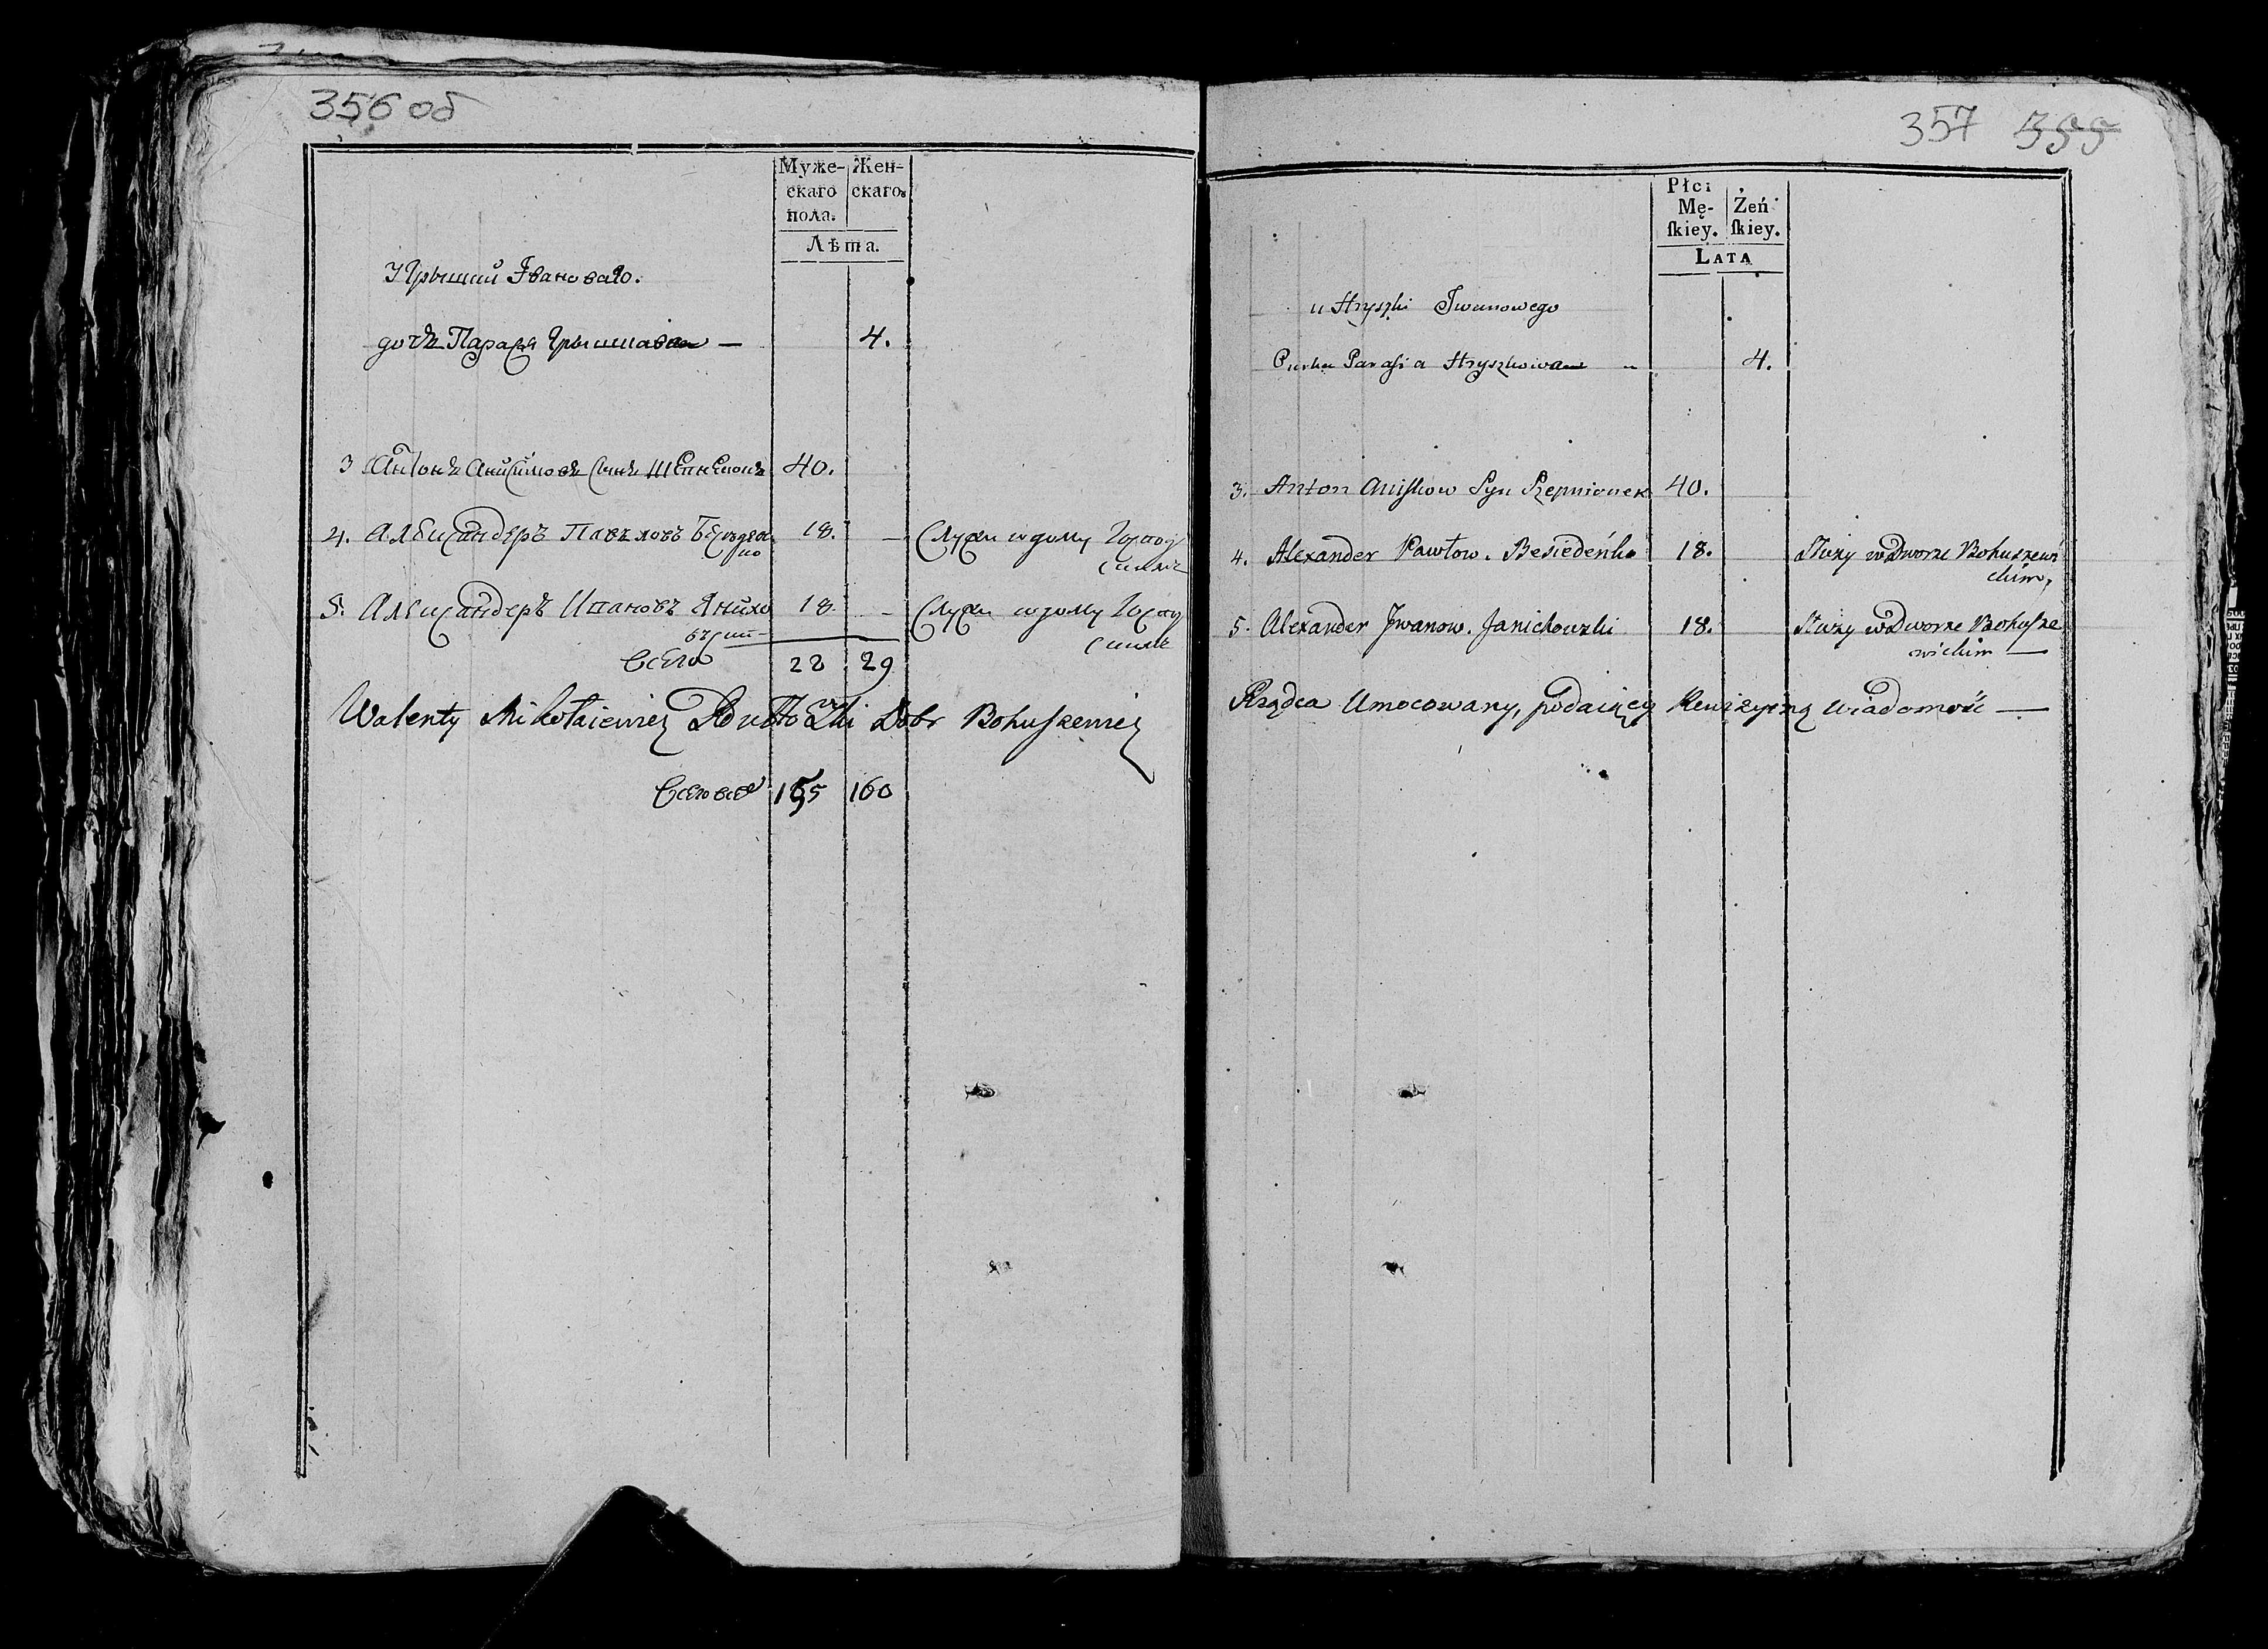 356 об
Муже-
скаго
пола.
Жен-
скаго.
Лѣта.
У Грышки Ивановаго.
дочь Парася Грышкова — 4.
3 Антонъ Анисимовъ сынъ 40.
4. Александеръ Павловъ 18. — Служи в дому
5. Александеръ Ивановъ Янихо 18. — Служи в дому
всего 22 29
Walenty Mikołaiewicz Dobr Bohuszewicz
всего все 155 160
357 355
Płci
Mę-
ſkiey.
Żeń
ſkiey.
LATA
u Hryszki Iwanowego
Curka Parasia Hryszkowa 4.
3. Anton Aniskow Syn Szepnionek 40.
4. Alexander Pawłow. Besiedeńko 18. Służy w Dworze Bohuszewi
ckim,
5. Alexander Jwanow. Janichowzki 18. Służy w Dworze Bohusze
wickim —
Rządca Umocowany, podaiący Rewizyiną wiadomość —